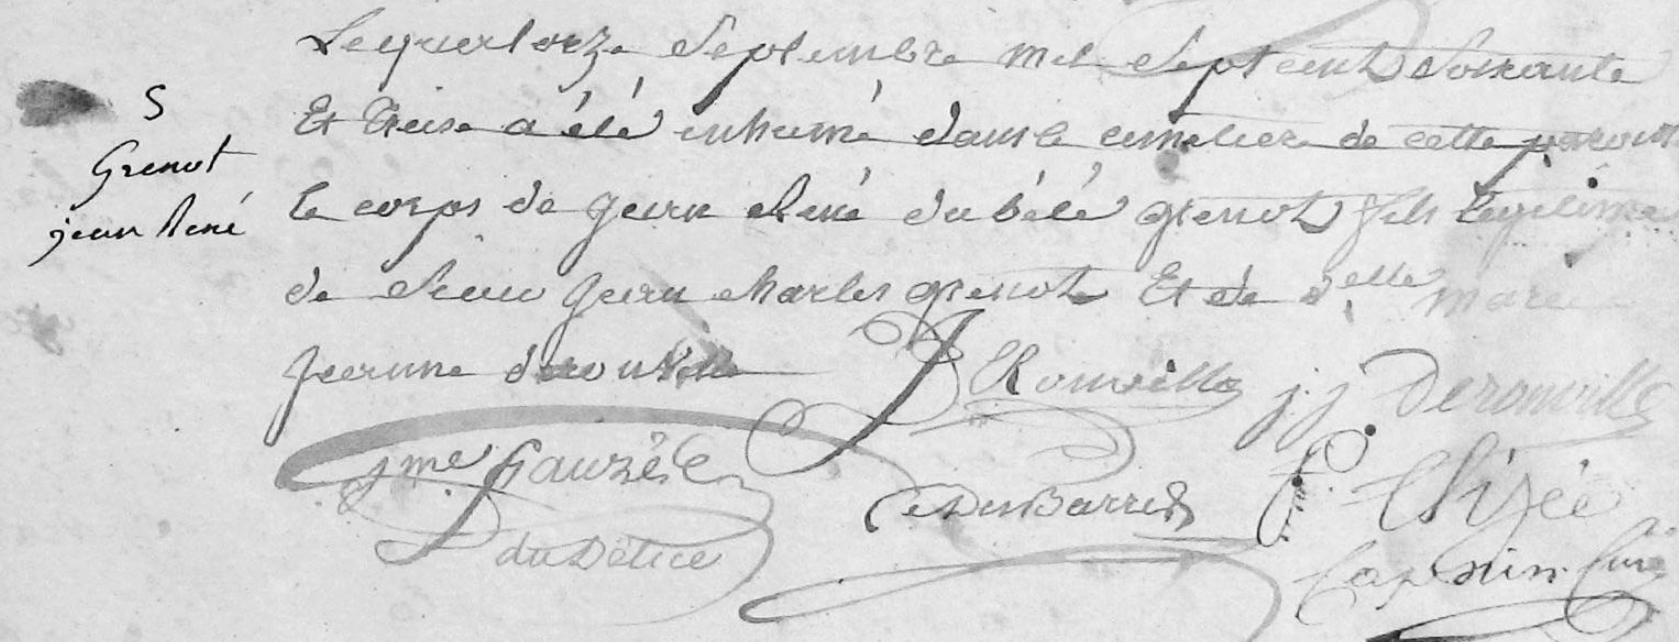 S
Grenot
jean René
Le quatorze Septembre mil Sept cent Soixante
Et treise a été inhumé dans le cimetiere de cette paroisse
le corps de jean René grenot fils legitime
de Sieur jean charles grenot Et de delle marie
jeanne derouville
Rouville
j.j. Derouville
jme Gauzéle
DesBarres
P. Elisée
du Delice
Capucin Curé